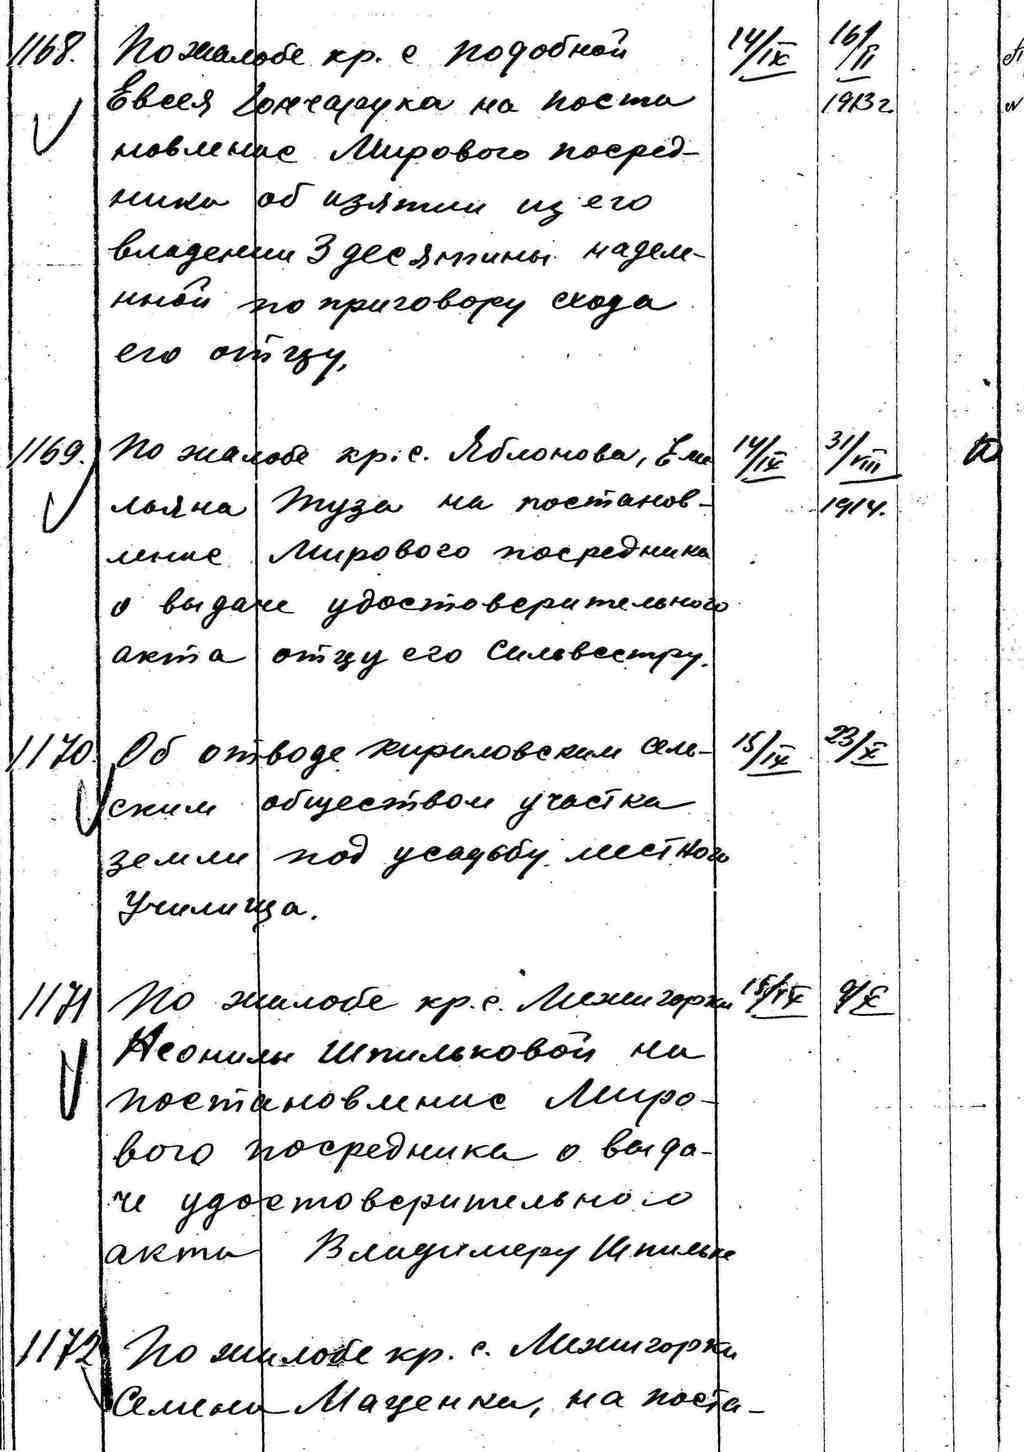 1168. По жалобе кр. с Подобной 14/IX 16/II
Евсея Гончарука на поста 1913 г.
новление Мирового посред-
ника об изятии из его
владении 3 десятины надел-
нной по приговору схода
его отцу,
1169. По жалобе кр. с. Яблонова, Еми 14/IX 31/VIII
льяна Туза на постанов- 1914.
ление Мирового посредника
о выдаче удостоверительного
акта отцу его Сильвестру.
1170. Об отводе Кириловским сель- 15/IX 23/X
ским обществом участка
земли под усадьбу местного
Училища.
1171 По жалобе кр. с. Межигорки 15/IX 9/X
Неонилы Шпильковой на
постановление Миро-
вого посредника о выда-
че удостоверительного
акта Владимеру Шпильке
1172 По жалобе кр. с. Межигорки
Семена Маценка, на поста-